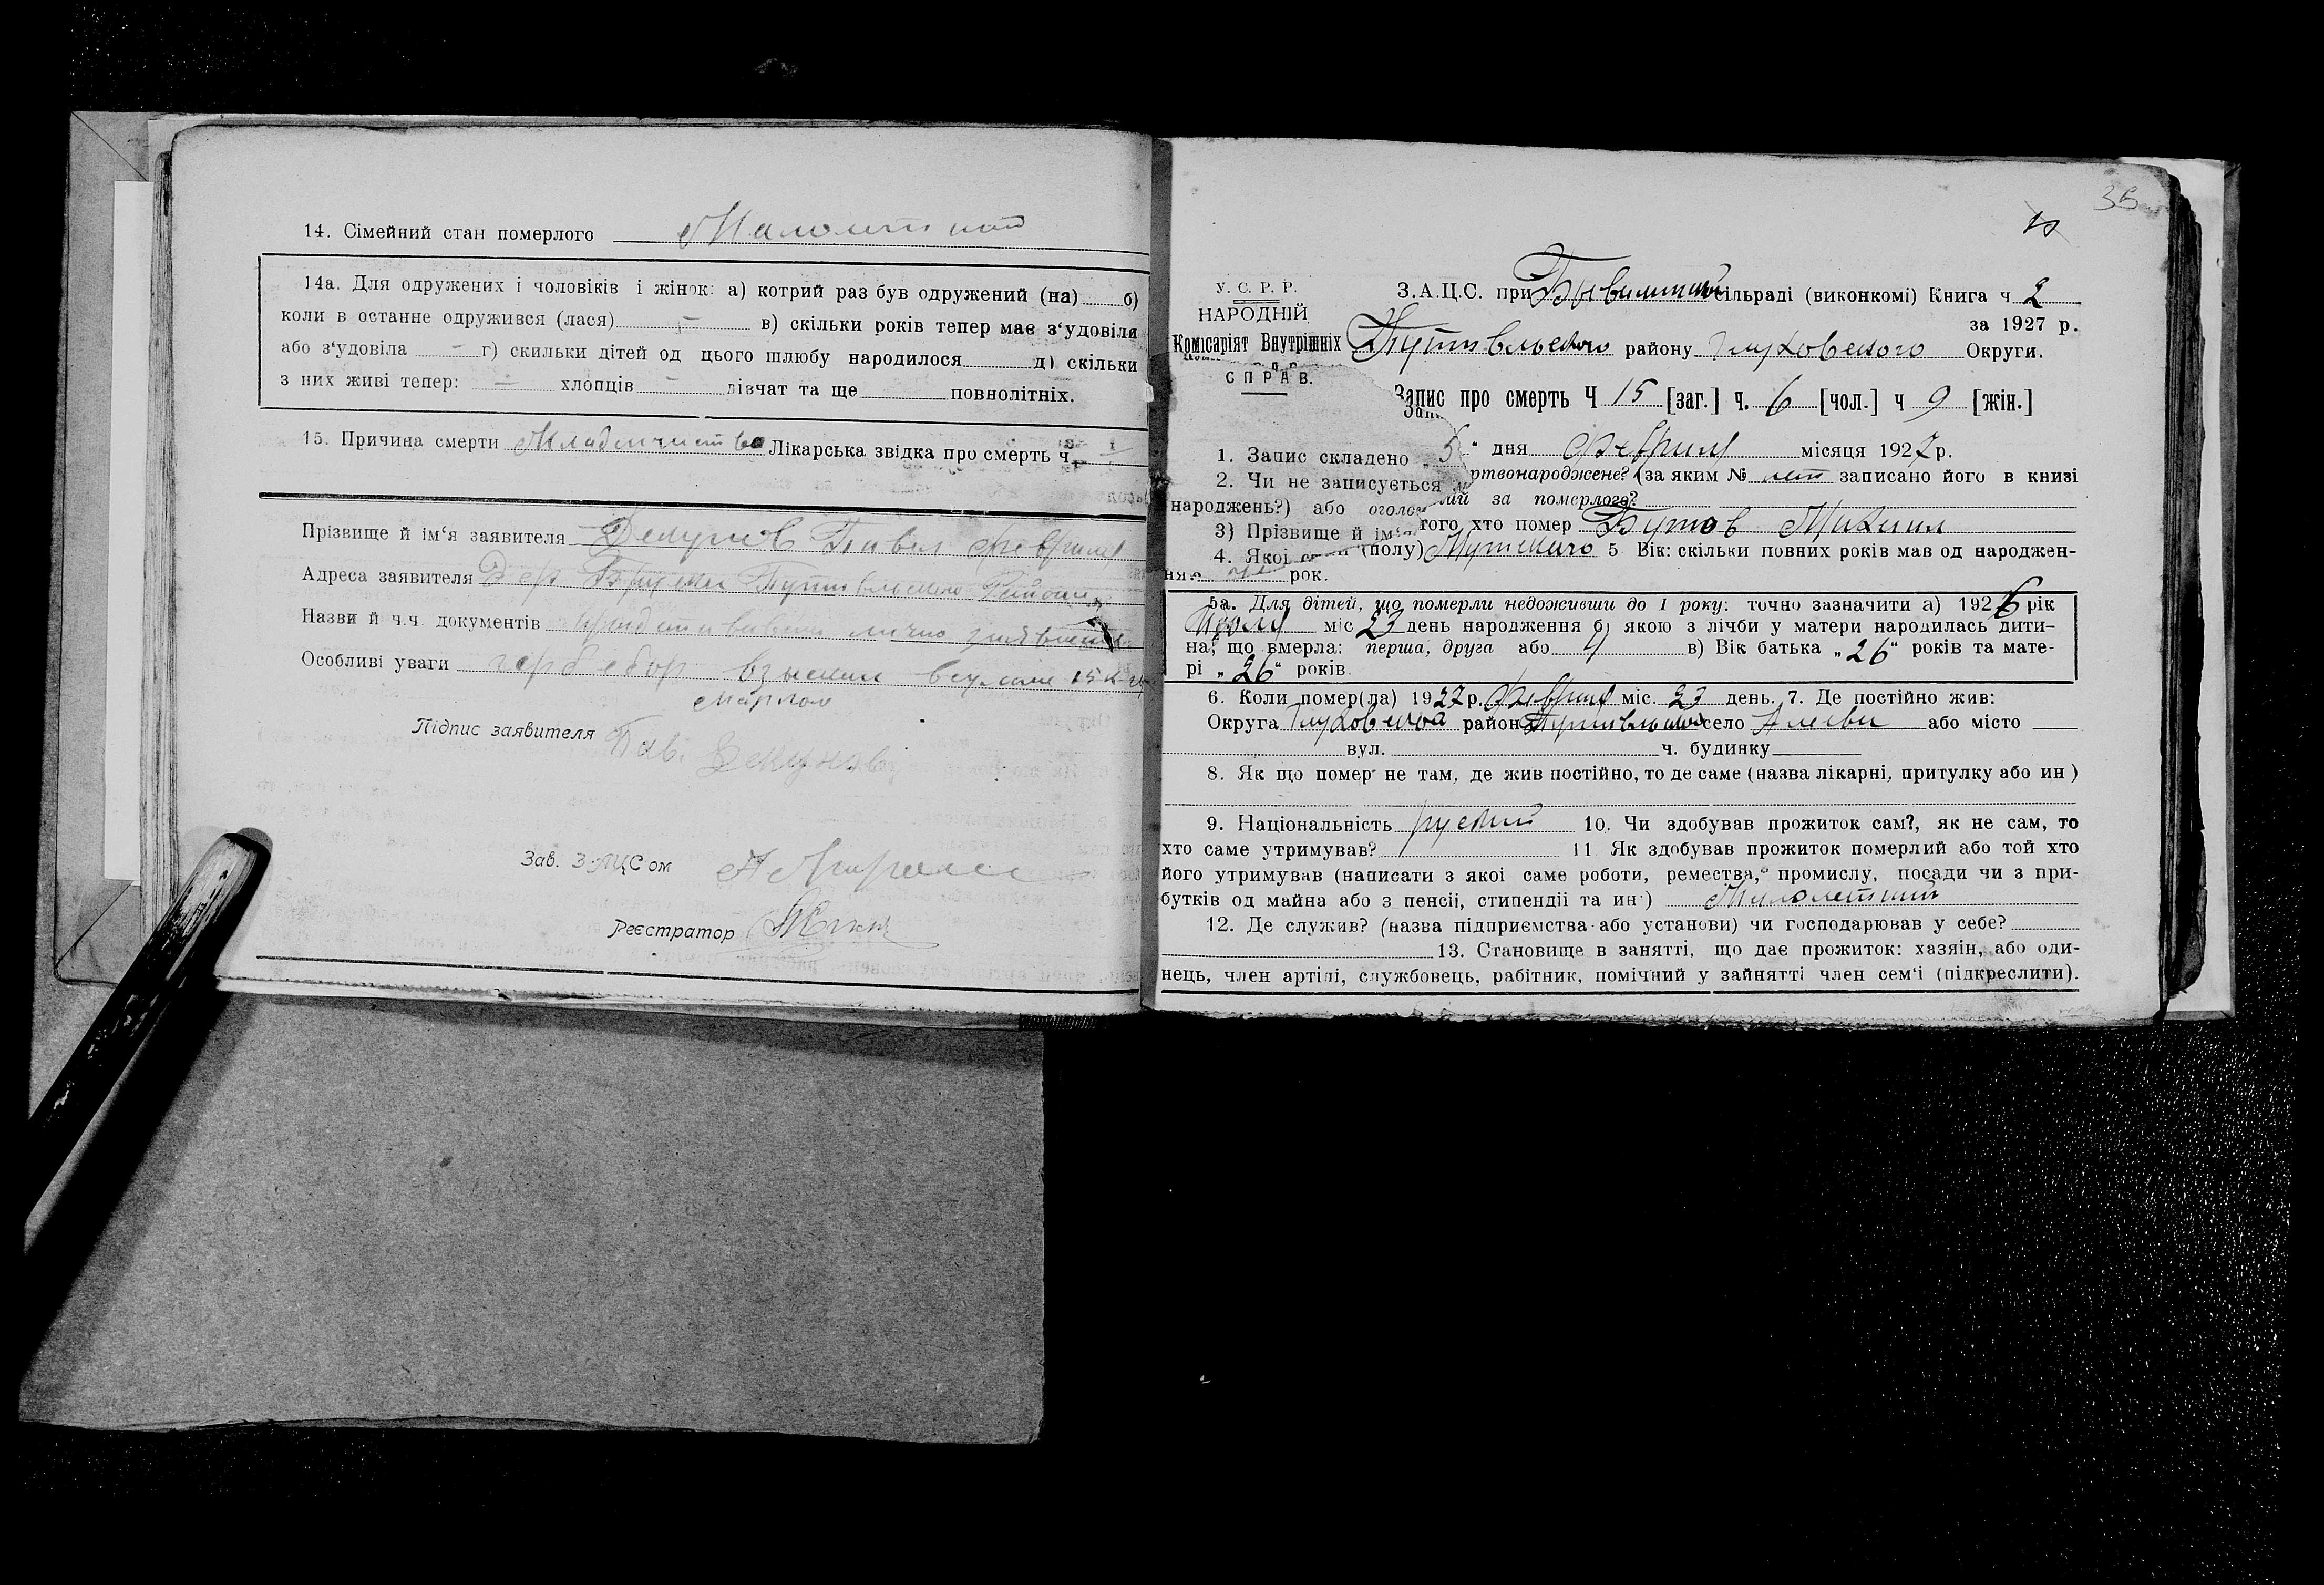 14. Сімейний стан померлого Малолетний
14а. Для одружених і чоловіків і жінок: а) котрий раз був одружений (на) б)
коли в останне одружився (лася) - в) скільки років тепер має з'удовіли
або з'удовіла - г) скильки дітей од цього шлюбу народилося д) скільки
з них живі тепер: - хлопців - дівчат та ще повнолітніх.
15. Причина смерти Младенчество Лікарська звідка про смерть ч.
Прізвище й ім'я заявителя Павел
Адреса заявителя Дер Путивльского Района
Назви й ч.ч. документів лично
Особливі уваги гербсбор взыскан 15 к
маркою
Підпис заявителя Пав.
Зав. З.А.Ц.С ом
Реєстратор
35
У. С. Р. Р.
НАРОДНІЙ
Комісаріят Внутрішніх
СПРАВ.
З.А.Ц.С. при сільраді (виконкомі) Книга ч 2
за 1927 р.
Путивльского району Глуховского Округи.
Запис про смерть Ч 15 [заг.] ч. 6 [чол.] ч 9 [жін.]
1. Запис складено „5" дня Февраля місяця 1927 р.
2. Чи не записується ртвонароджене? (за яким № нет записано його в книзі
народжень?) або оголо ий за померлого?
3) Прізвище й ім' того хто помер Бутов Михаил
4. Якої (полу) Мужского 5 Вік: скільки повних років мав од народжен-
ня рок.
5а. Для дітей, що померли недоживши до 1 року: точно зазначити а) 1926 рік
Июля міс 23 день народження б) якою з лічби у матери народилась дити-
на, що вмерла: перша, друга або 4 в) Вік батька „26" років та мате-
рі „26" років.
6. Коли помер(ла) 1927 р. Февраля міс. 23 день. 7. Де постійно жив:
Округа Глуховска район Путивльский село або місто
вул. ч. будинку
8. Як що помер не там, де жив постійно, то де саме (назва лікарні, притулку або ин )
9. Національність руский 10. Чи здобував прожиток сам?, як не сам, то
хто саме утримував? 11 Як здобував прожиток померлий або той хто
його утримував (написати з якоі саме роботи, ремества, промислу, посади чи з при-
бутків од майна або з пенсіі, стипендіі та ин·) Малолетний
12. Де служив? (назва підприємства або установи) чи господарював у себе?
13. Становище в занятті, що дає прожиток: хазяін, або оди-
нець, член артілі, службовець, рабітник, помічний у зайнятті член сем'і (підкреслити).